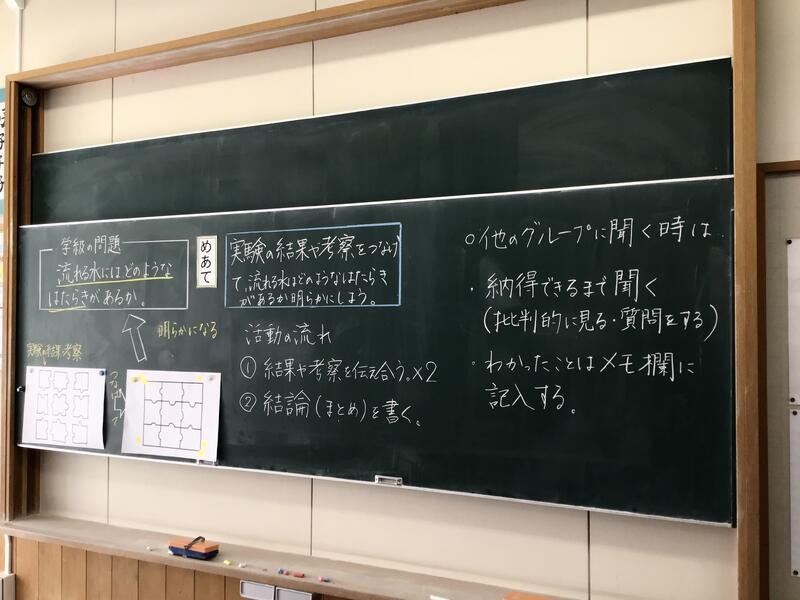 学級の問題
流れる水にはどのような
はたらきがあるか。
明らかになる
実験の結果・考察
つなげて
めあて
実験の結果や考察をつなげ
て、流れる水はどのようなはたらき
があるか明らかにしよう。
活動の流れ
① 結果や考察を伝え合う。×2
② 結論(まとめ)を書く。
○他のグループに聞く時は
・納得できるまで聞く
(批判的に見る・質問をする)
・わかったことはメモ欄に
記入する。